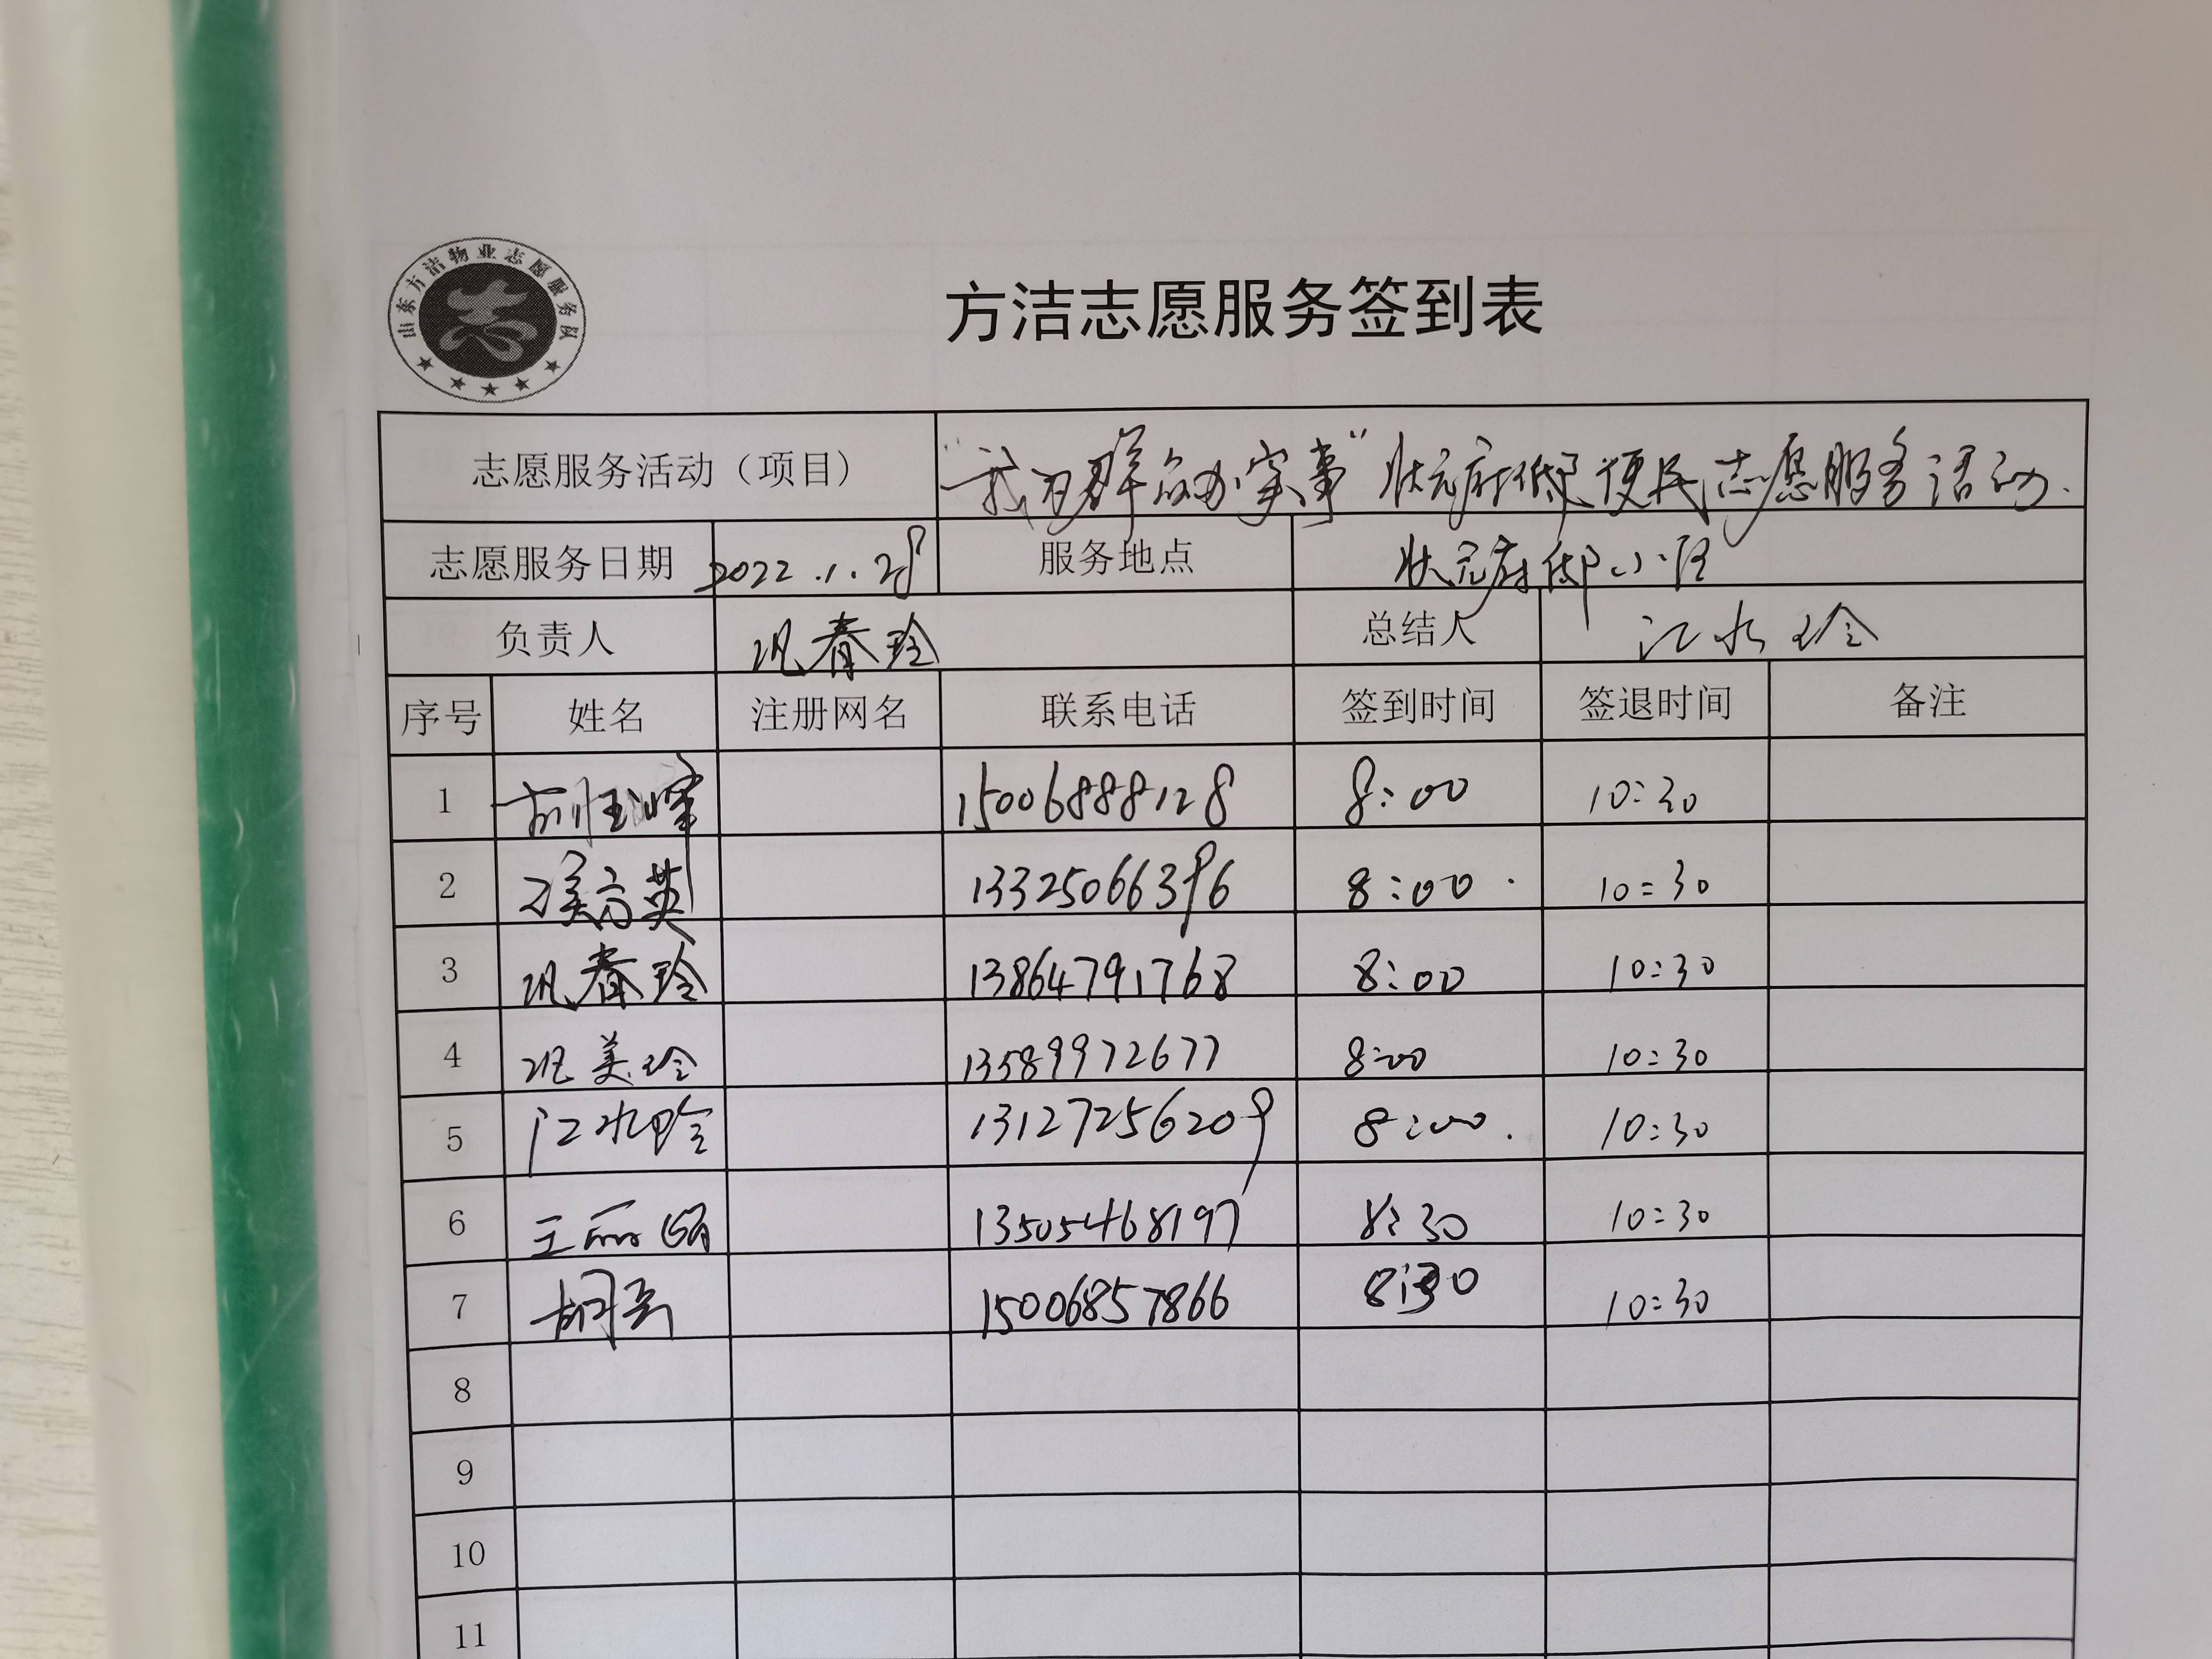 山东方洁物业志愿服务队
方洁志愿服务签到表
志愿服务活动（项目） "我为群众办实事"状元府邸便民志愿服务活动.
志愿服务日期 2022.1.28 服务地点 状元府邸小区
负责人 巩春玲 总结人 江水玲
序号 姓名 注册网名 联系电话 签到时间 签退时间 备注
1 15006888128 8:00 10:30
2 13325066396 8:00 10:30
3 巩春玲 13864791768 8:00 10:30
4 巩美玲 13589972677 8:00 10:30
5 江水玲 13127256209 8:00 10:30
6 王丽娟 13505468197 8:30 10:30
7 15006857866 8:30 10:30
8
9
10
11